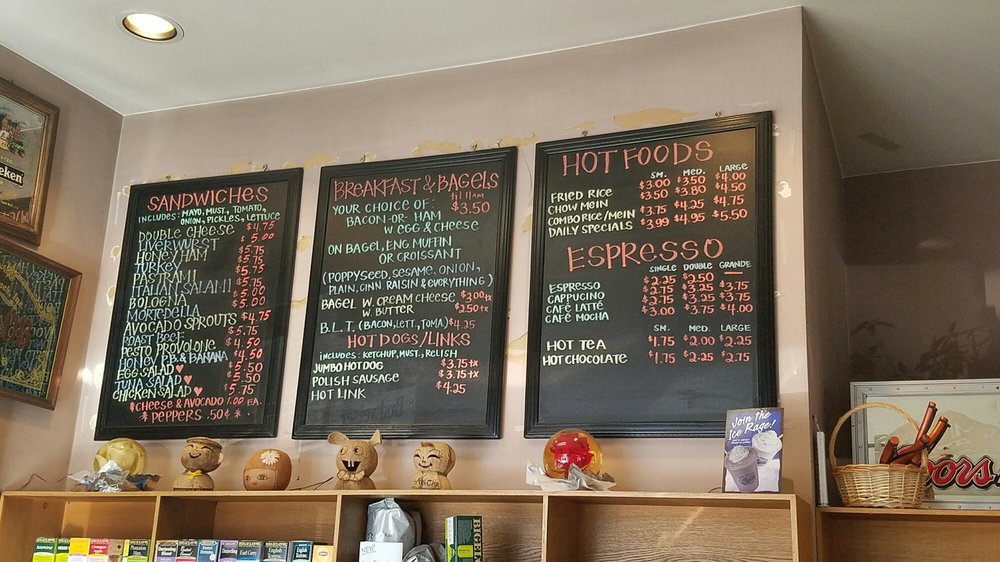 SANDWICHES
INCLUDES: MAYO, MUST., TOMATO,
ONION, PICKLES, LETTUCE
DOUBLE CHEESE $4.75
LIVERWURST $5.00
HONEY HAM $5.75
TURKEY $5.75
PASTRAMI $5.75
ITALIAN SALAMI $5.75
BOLOGNA $5.00
MORTEDELLA $5.00
AVOCADO SPROUTS $4.75
ROAST BEEF $5.75
PESTO PROVOLONE $4.50
HONEY P.B. & BANANA $4.50
EGG SALAD ♥ $5.50
TUNA SALAD ♥ $5.50
CHICKEN SALAD ♥ $5.75
*CHEESE & AVOCADO 1.00 EA.
*PEPPERS .50¢*
BREAKFAST & BAGELS
til 11am
YOUR CHOICE OF: $3.50
BACON -OR- HAM
W EGG & CHEESE
ON BAGEL, ENG MUFFIN
OR CROISSANT
(POPPYSEED, SESAME, ONION,
PLAIN, CINN RAISIN & EVERYTHING)
BAGEL W. CREAM CHEESE $3.00+x
W. BUTTER $2.50+x
B.L.T. (BACON, LETT, TOMA) $4.25
HOT DOGS/LINKS
INCLUDES: KETCHUP, MUST., RELISH
JUMBO HOT DOG $3.75+x
POLISH SAUSAGE $3.75+x
HOT LINK $4.25
HOT FOODS
SM. MED. LARGE
FRIED RICE $3.00 $3.50 $4.00
CHOW MEIN $3.50 $3.80 $4.50
COMBO RICE/MEIN $3.75 $4.25 $4.75
DAILY SPECIALS $3.99 $4.95 $5.50
ESPRESSO
SINGLE DOUBLE GRANDE
ESPRESSO $2.25 $2.50 —
CAPPUCINO $2.75 $3.25 $3.75
CAFÉ LATTÉ $2.75 $3.25 $3.75
CAFÉ MOCHA $3.00 $3.75 $4.00
SM. MED. LARGE
HOT TEA $1.75 $2.00 $2.25
HOT CHOCOLATE $1.75 $2.25 $2.75
Join the
Ice Rage!
Coors